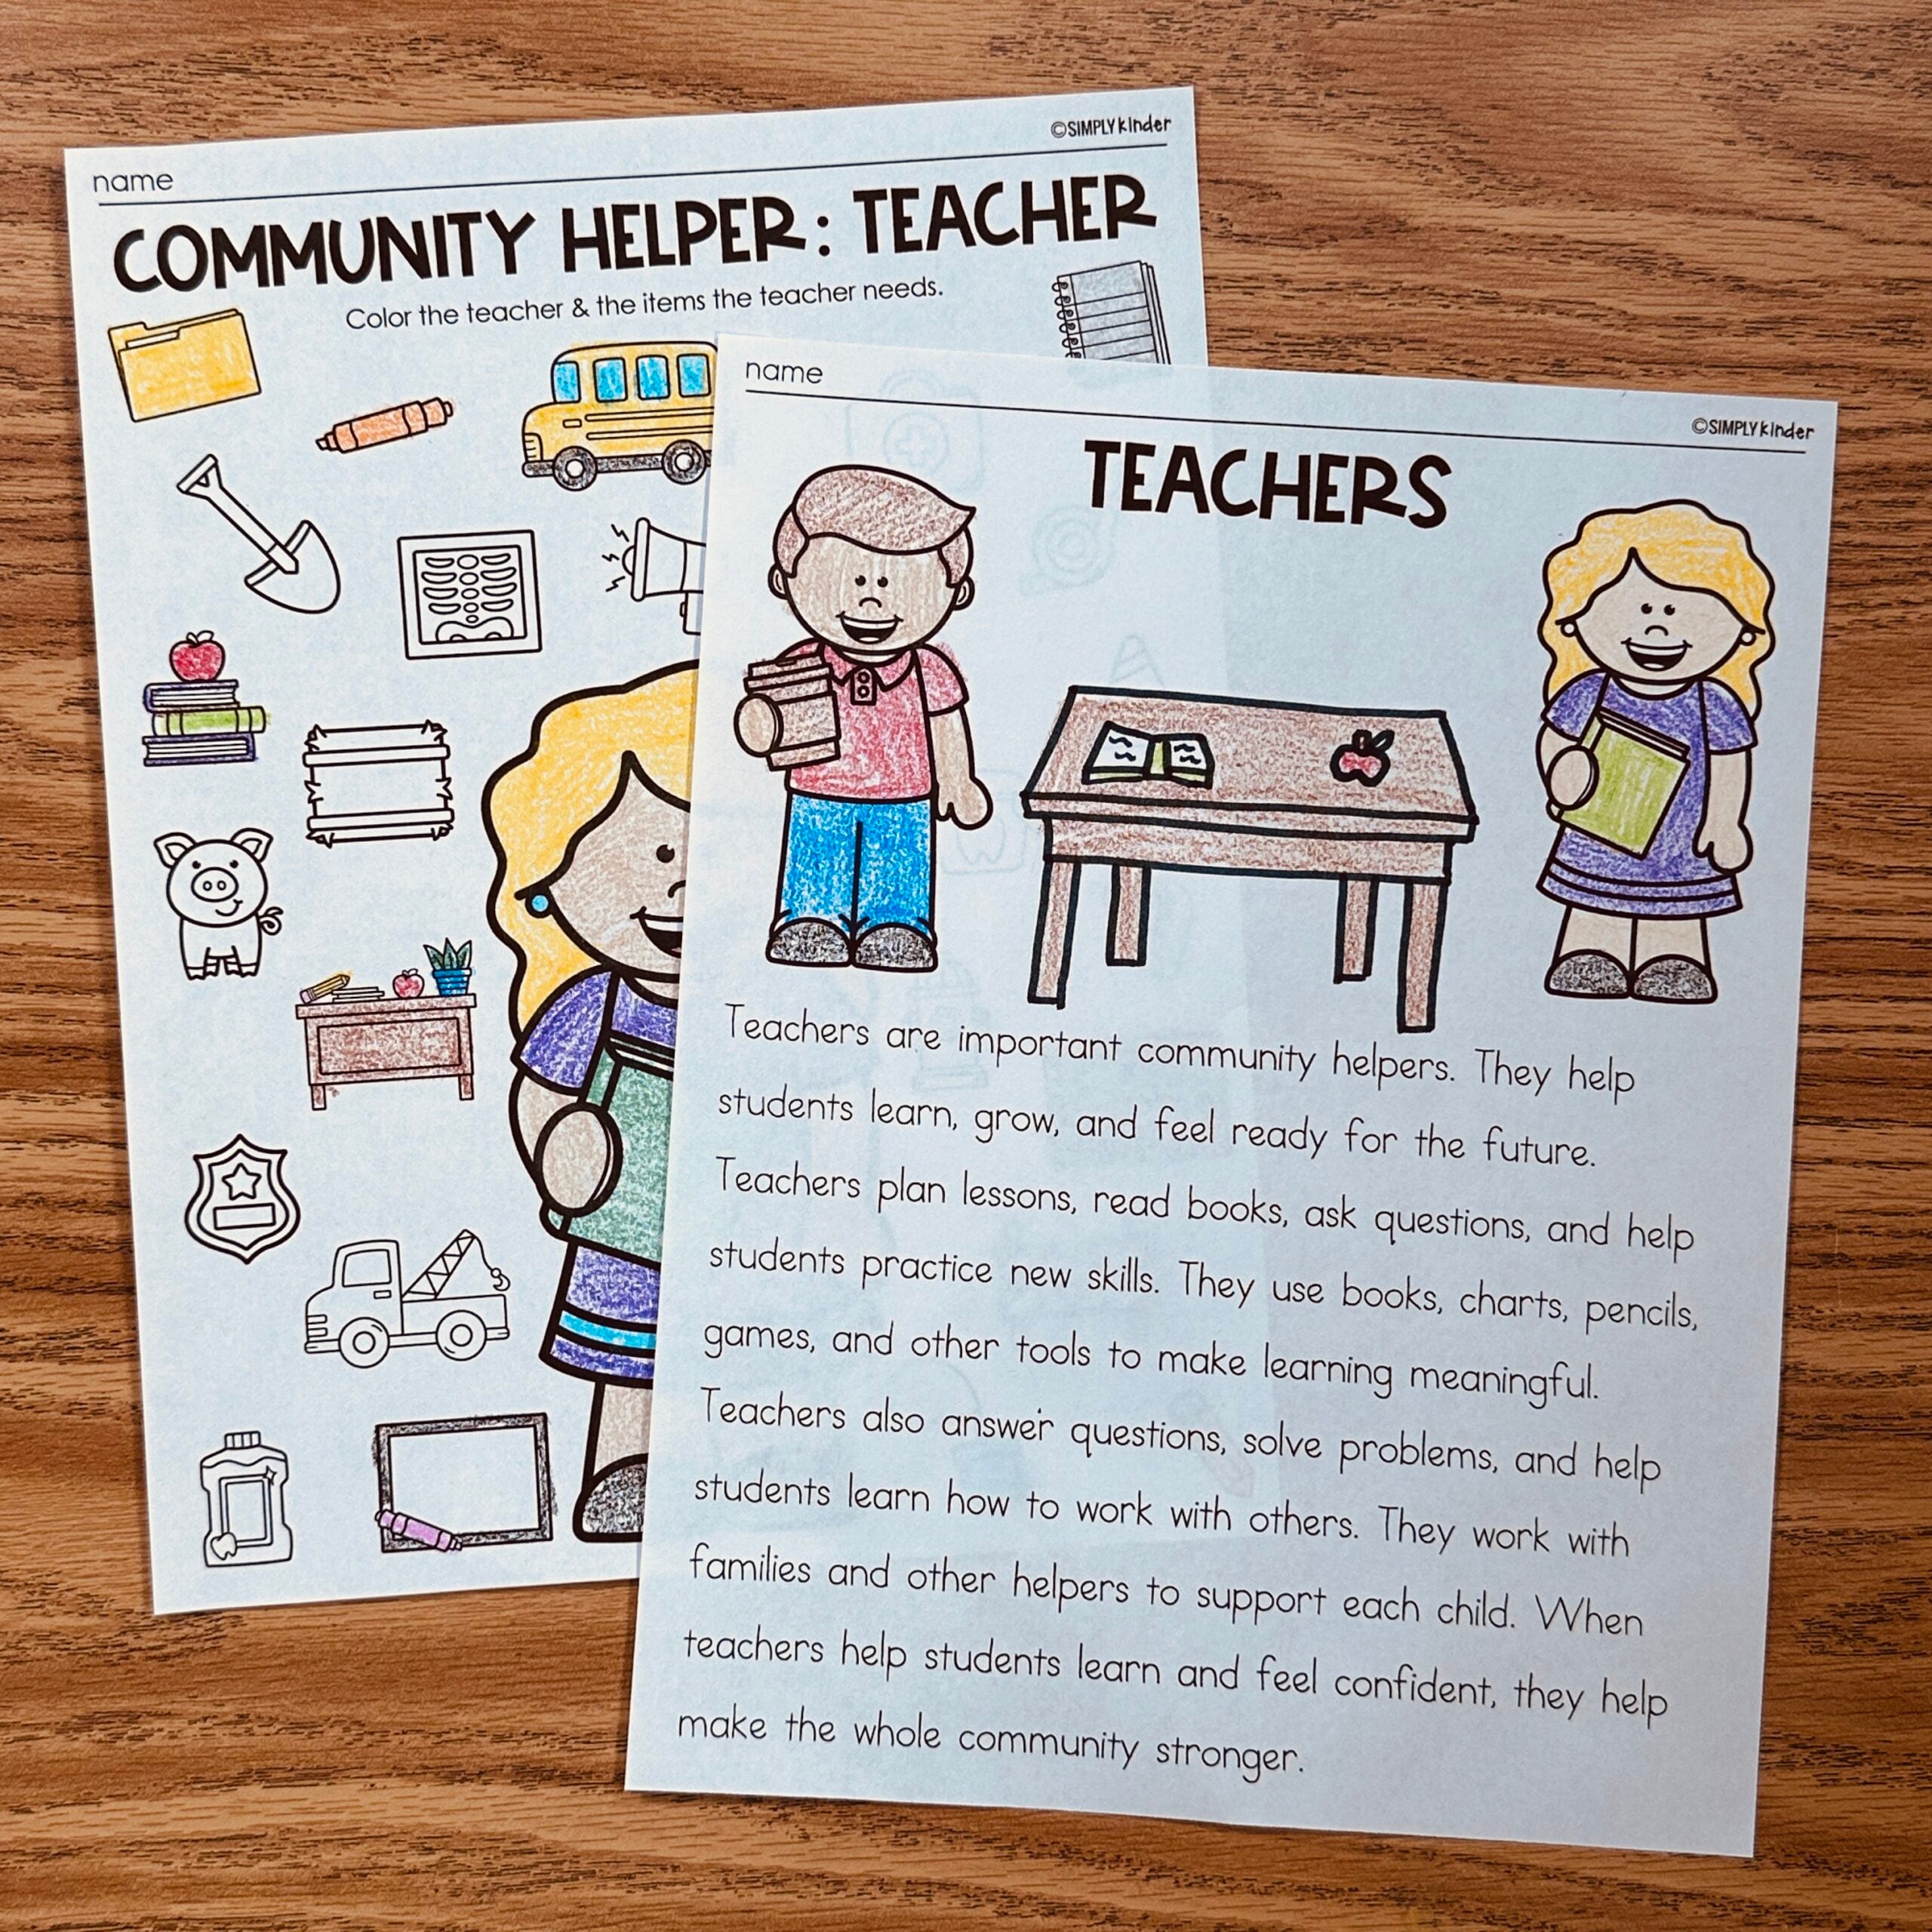 ©SIMPLY kinder
name
COMMUNITY HELPER: TEACHER
Color the teacher & the items the teacher needs.
name
©SIMPLY kinder
TEACHERS
Teachers are important community helpers. They help
students learn, grow, and feel ready for the future.
Teachers plan lessons, read books, ask questions, and help
students practice new skills. They use books, charts, pencils,
games, and other tools to make learning meaningful.
Teachers also answer questions, solve problems, and help
students learn how to work with others. They work with
families and other helpers to support each child. When
teachers help students learn and feel confident, they help
make the whole community stronger.